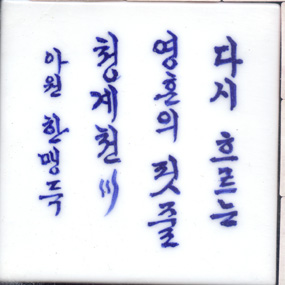 다시 흐르는
영혼의 핏줄
청계천 川
아원 한맹득